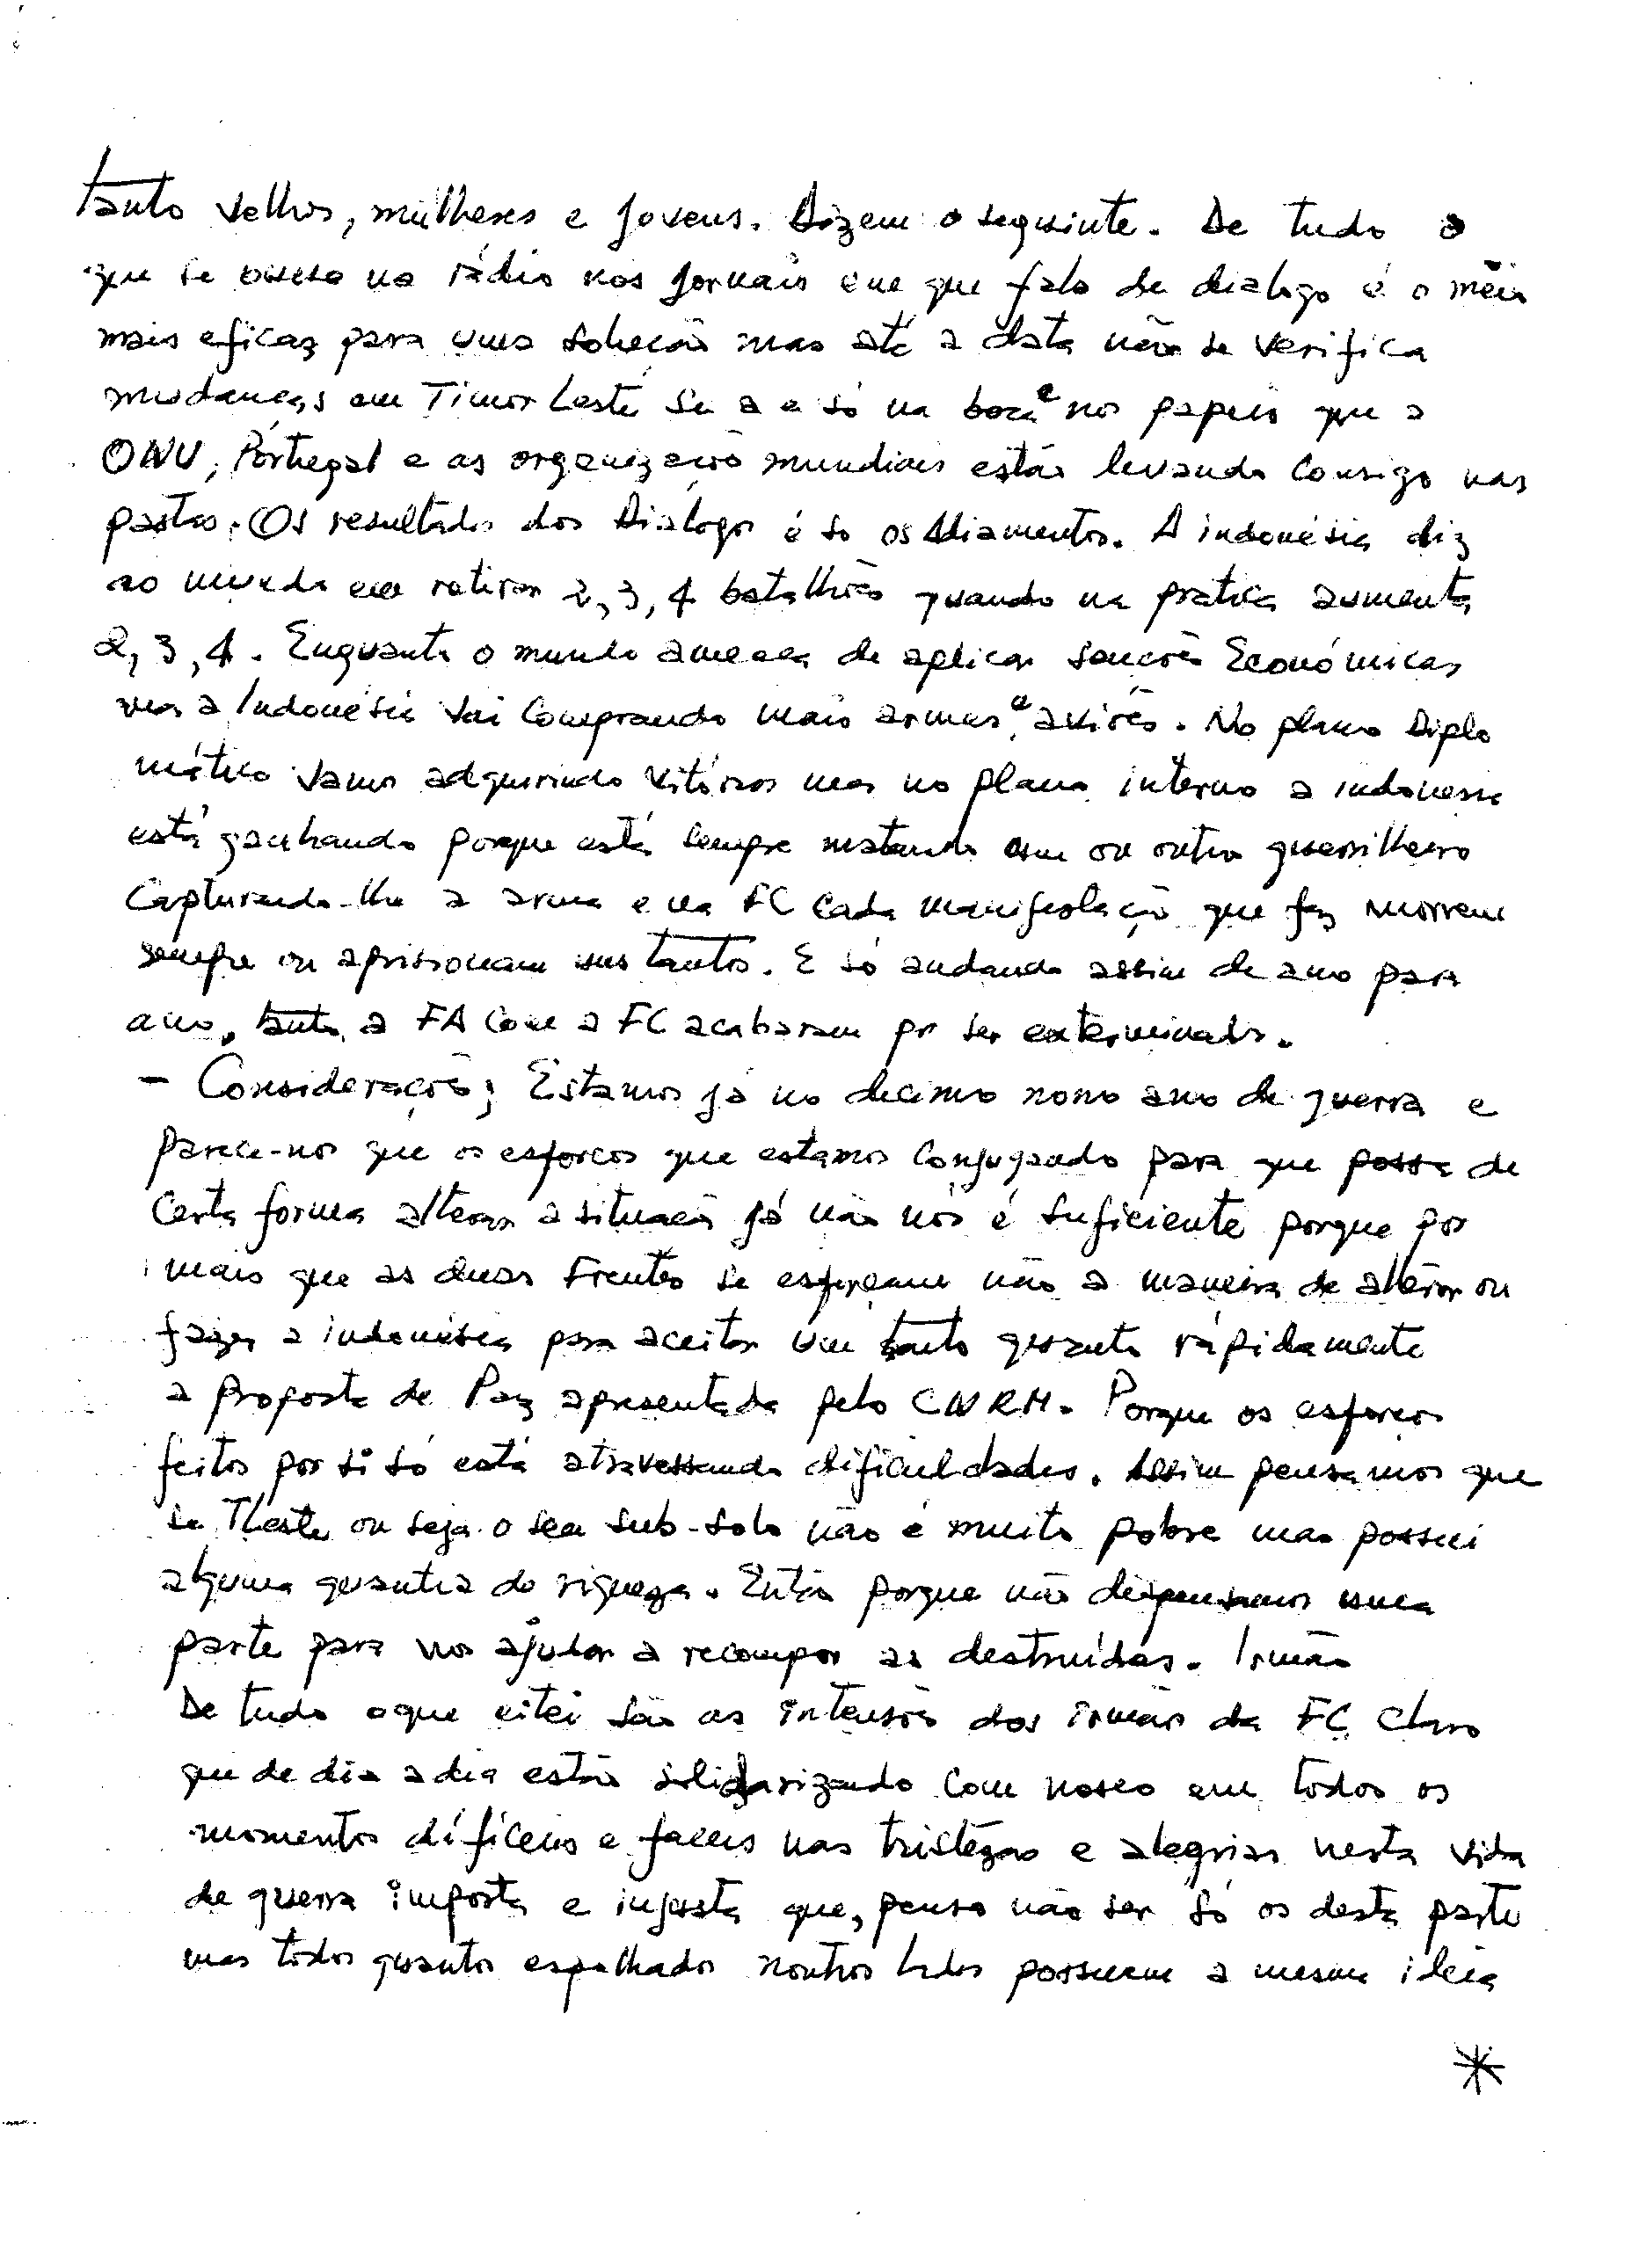 tanto velhos, mulheres e jovens. Dizem o seguinte. De tudo o
que se ouve na rádio nos jornais em que fala de dialogo é o meio
mais eficaz para uma solução mas até a data não se verifica
mudanças em Timor Leste se a e só na boca e nos papeis que a
ONU, Portugal e as organização mundiais estão levando consigo nas
pastas. Os resultados dos Diálogos é so os Adiamentos. A indonésia diz
ao mundo em retirar 2, 3, 4 batalhões quando na pratica aumenta
2, 3, 4. Enquanto o mundo ameaça de aplicar sanções Económicas
mas a Indonésia vai comprando mais armas e aviões. No plano Diplo
mático vamos adquirindo vitórias mas no plano interno a indonesia
está ganhando porque está sempre matando um ou outro guerrilheiro
Capturando-lhe a arma e na FC cada manifestação que faz morrem
sempre ou aprisionam uns tantos. E só andando assim de ano para
ano, tanto a FA como a FC acabaram por ser exterminados.
- Considerações; Estamos já no decimo nono ano de guerra e
parece-nos que os esforços que estamos conjugando para que possa de
certa forma alterar a situação já não nós é suficiente porque por
mais que as duas Frentes se esforçam não a maneira de alterar ou
fazer a indonésia para aceitar um tanto quanto rápidamente
a proposta de Paz apresentada pelo CNRM. Porque os esforços
feitos por si só está atravessando dificuldades. Assim pensamos que
se TLeste ou seja o seu sub-solo não é muito pobre mas possui
alguma garantia de riqueza. Então porque não dispensamos uma
parte para nos ajudar a recompor as destruídas. Irmão
De tudo o que citei são as intensões dos irmãos da FC claro
que de dia a dia estão solidarizando com nosco em todos os
momentos difíceis e faceis nas tristezas e alegrias nesta vida
de guerra imposta e injusta que, penso não ser só os desta parte
mas todos quantos espalhados noutros lados possuem a mesma ideia
*